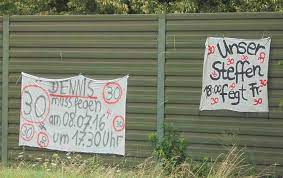 DENNIS
30
30
muss fegen
am 08.07.16
um 17.30 Uhr
30
30
30
30
30
Unser
30
Steffen
30
18:00 fegt Fr.
30
30